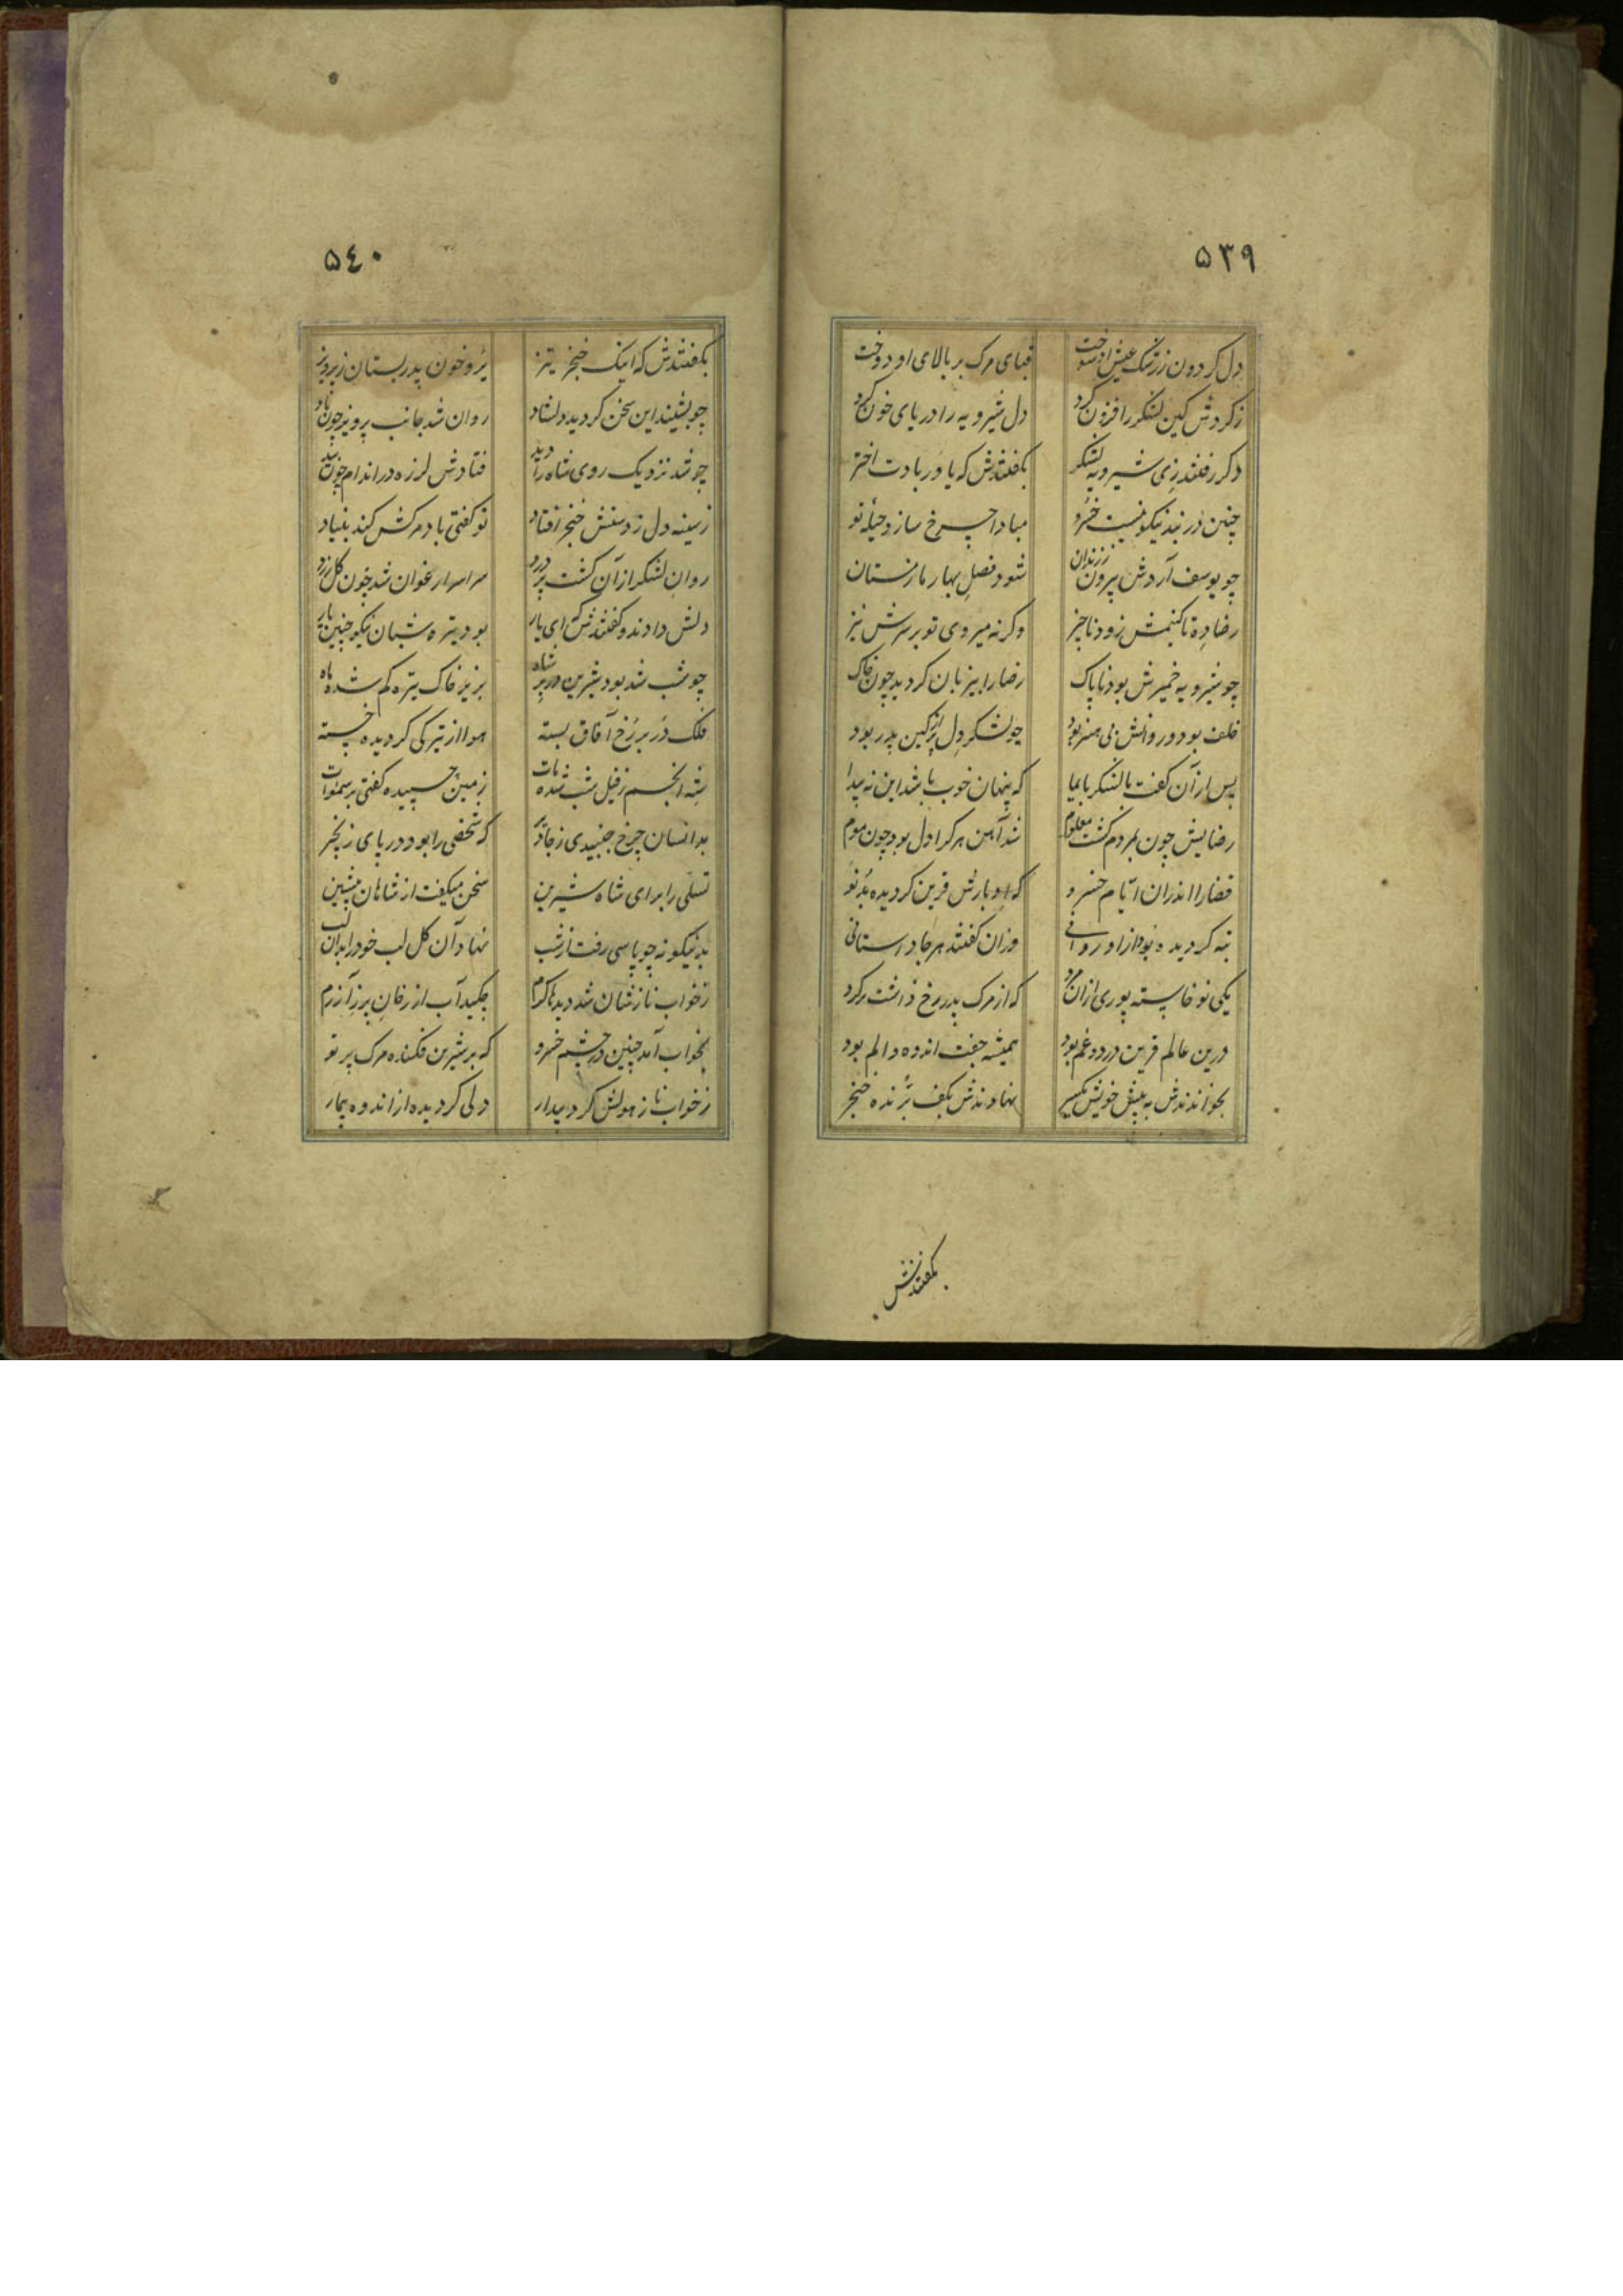 ۵۳۹
دل گردون ز رشک عیش او سوخت قبای مرک بر بالای او دوخت
ز کردوش کین لشکر را فزون کرد دل شیرویه را دریای خون کرد
دکر رفتند زی شیرویه لشکر بکفتندش که یاور بادت اختر
چنین در بند نیکو نیست خسرو مبادا چرخ سازد حیلهٔ نو
چو یوسف آردش بیرون ز زندان شود فصل بهار ما زمستان
رضا ده تا کنیمش زود ناچیز وکرنه میروی تو بر سرش نیز
چو شیرویه ضمیرش بود ناپاک رضا را بیزبان کردید چون خاک
خلف بود و روانش بی هنر بود چو لشکر دل پر از کین پدر بود
پس از آن کفت با لشکر بایما که پنهان خوب باشد این نه پیدا
رضایش چون بمردم کشت معلوم شد آهن هر کرا دل بود چون موم
قضا را اندران ایام خسرو که ادبارش قرین کردیده بد نو
تبه کردیده بود از او روانی وزان کفتند هر جا داستانی
یکی نو خاسته پوری ازان مرد که از مرک پدر رخ داشت پر کرد
درین عالم قرین درد و غم بود همیشه جفت اندوه و الم بود
بخواندندش به پیش خویش یکسر نهادندش بکف برنده خنجر
بکفتندش
۵٤۰
بکفتندش که اینک خنجر تیز برو خون پدر بستان ز پرویز
چو بشنید این سخن کردید دلشاد روان شد جانب پرویز چون باد
چو شد نزدیک روی شاه را دید فتادش لرزه در اندام چون بید
ز سینه دل ز دستش خنجر افتاد تو کفتی باد مرکش کند بنیاد
روان لشکر از آن کشت پر درد سراسر ارغوان شد چون کل زرد
دلش دادند و کفتندش که ای یار بود تیره شبان نیکو چنین کار
چو شب شد بود شیرین در بر شاه بزیر خاک تیره کم شده ماه
فلک در بر رخ آفاق بسته هوا از تیرکی کردیده خسته
شه انجم ز فیل شب شده مات زمین چسپیده کفتی بر سموات
بدانسان چرخ جنبیدی ز جا دیر که شخصی را بود در پای زنجیر
تسلی را برای شاه شیرین سخن میکفت از شاهان پیشین
بدنیکونه چو پاسی رفت از شب نهاد آن کل لب خود را بدان لب
ز خواب نازشان شد دیدها کرم چکید آب از رخان پر ز آزرم
بخواب آمد چنین در چشم خسرو که بر شیرین فکنده مرک پرتو
ز خواب ناز هولش کرد بیدار دلی کردیده از اندوه بیمار